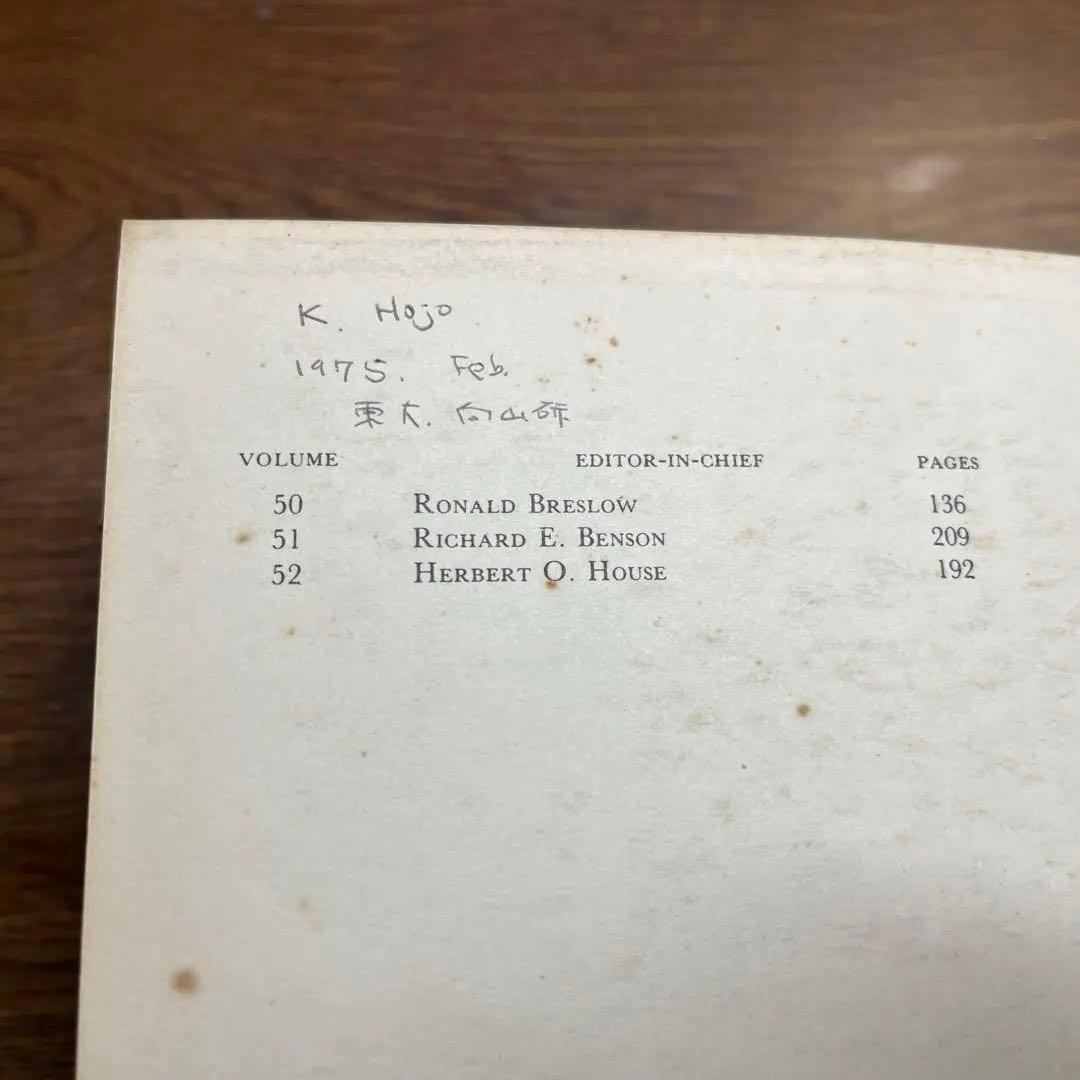 K. Hojo
1975. Feb.
東大. 向山研
VOLUME EDITOR-IN-CHIEF PAGES
50 RONALD BRESLOW 136
51 RICHARD E. BENSON 209
52 HERBERT O. HOUSE 192